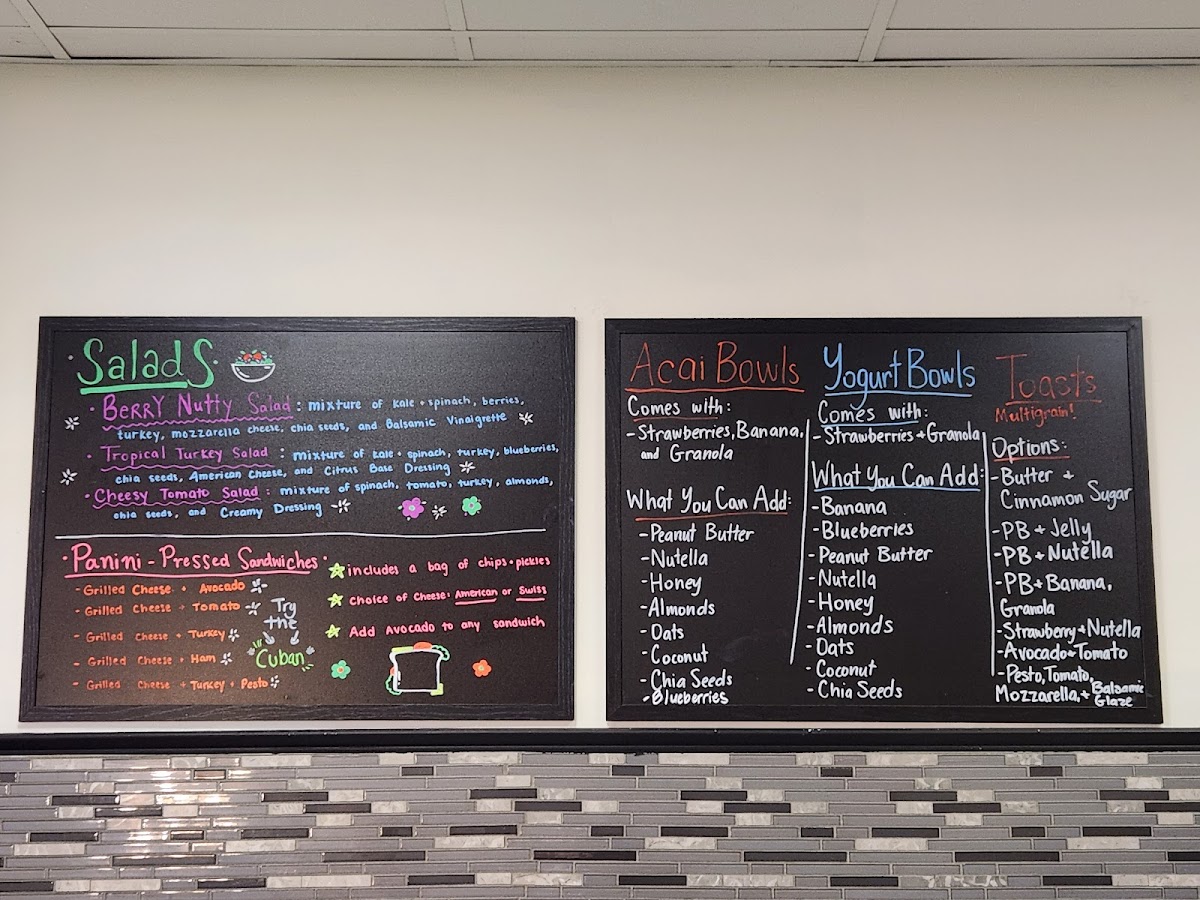 Salads
· Berry Nutty Salad : mixture of kale + spinach, berries,
turkey, mozzarella cheese, chia seeds, and Balsamic Vinaigrette
· Tropical Turkey Salad : mixture of kale + spinach, turkey, blueberries,
chia seeds, American Cheese, and Citrus Base Dressing
· Cheesy Tomato Salad : mixture of spinach, tomato, turkey, almonds,
chia seeds, and Creamy Dressing
· Panini - Pressed Sandwiches ·
- Grilled Cheese + Avocado
- Grilled Cheese + Tomato
- Grilled Cheese + Turkey
- Grilled Cheese + Ham
- Grilled Cheese + Turkey + Pesto
Try
the
"Cuban"
includes a bag of chips + pickles
choice of Cheese: American or Swiss
Add Avocado to any sandwich
Acai Bowls
Comes with:
- Strawberries, Banana,
and Granola
What You Can Add:
- Peanut Butter
- Nutella
- Honey
- Almonds
- Oats
- Coconut
- Chia Seeds
- Blueberries
Yogurt Bowls
Comes with:
- Strawberries + Granola
What You Can Add:
- Banana
- Blueberries
- Peanut Butter
- Nutella
- Honey
- Almonds
- Oats
- Coconut
- Chia Seeds
Toasts
Multigrain!
Options:
- Butter +
Cinnamon Sugar
- PB + Jelly
- PB + Nutella
- PB + Banana,
Granola
- Strawberry + Nutella
- Avocado + Tomato
- Pesto, Tomato,
Mozzarella, + Balsamic
Glaze